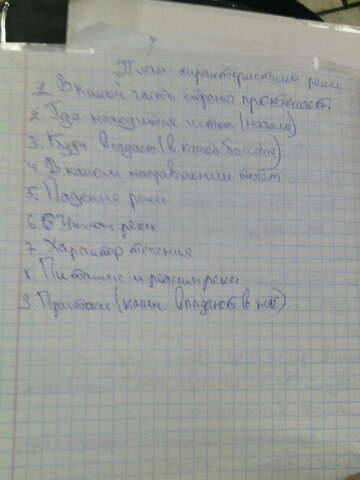 План характеристики реки
1. В какой части страны протекает.
2. Где находится исток (начало)
3. Куда впадает (в какой бассейн)
4. В каком направлении течёт
5. Падение реки
6. Уклон реки
7. Характер течения
8. Питание и режим реки
9. Притоки (какие впадают в неё)